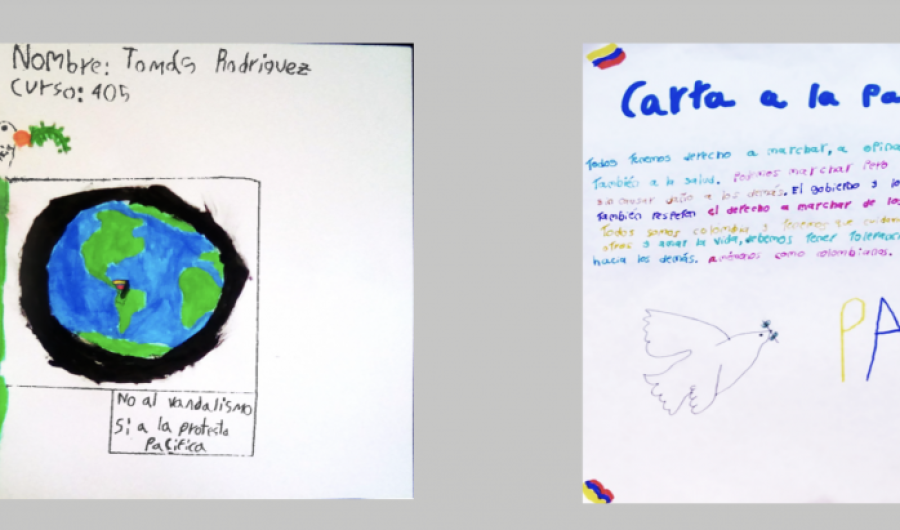 Nombre: Tomás Rodriguez
curso: 405
No al vandalismo
Si a la protesta
Pacifica
Carta a la Pa
Todos Tenemos derecho a marchar, a opina
También a la salud. Podemos marchar Pero
sin causar daño a los demás. El gobierno y lo
también respeten el derecho a marchar de los
Todos somos colombia y Tenemos que cuidarn
otros y amar la vida, debemos Tener Toleranci
hacia los demás. como colombianos.
PA